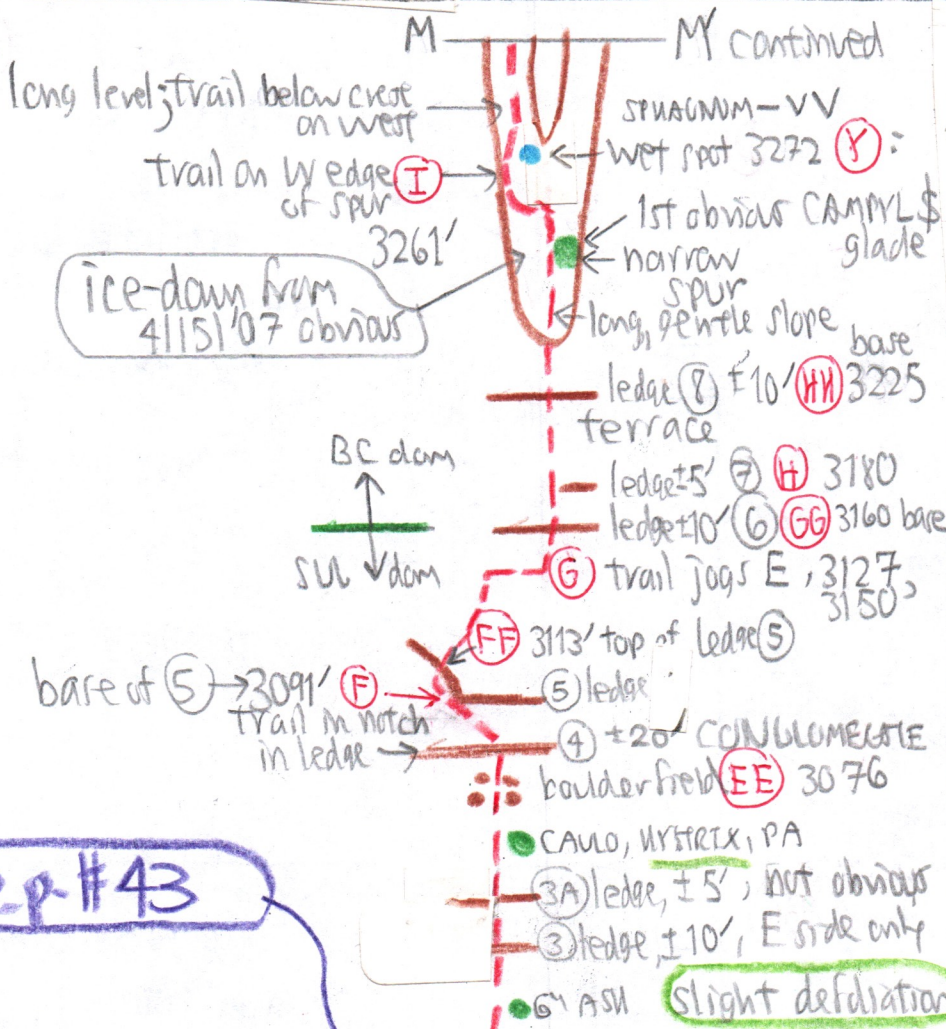 M M' continued
long level; trail below crest
on west
SPHAGNUM-VV
wet spot 3272 Y:
trail on W edge I
of spur
3261'
1st obvious CAMPYL $
glade
narrow
spur
ice-down from
4115'07 obvious
long, gentle slope
base
ledge 8 ±10' HH 3225
terrace
BC dom
ledge ±5' 7 H 3180
ledge ±10' 6 GG 3160 base
SUL dom
G trail jogs E, 3127,
3150'
FF 3113' top of ledge 5
base of 5 → 3091' F
5 ledge
trail in notch
in ledge
4 ±20' CONGLOMERATE
boulder field EE 3076
CAULO, HYSTRIX, PA
p. #43
3A ledge, ±5', not obvious
3 ledge, ±10', E side only
6" ASH slight defoliation